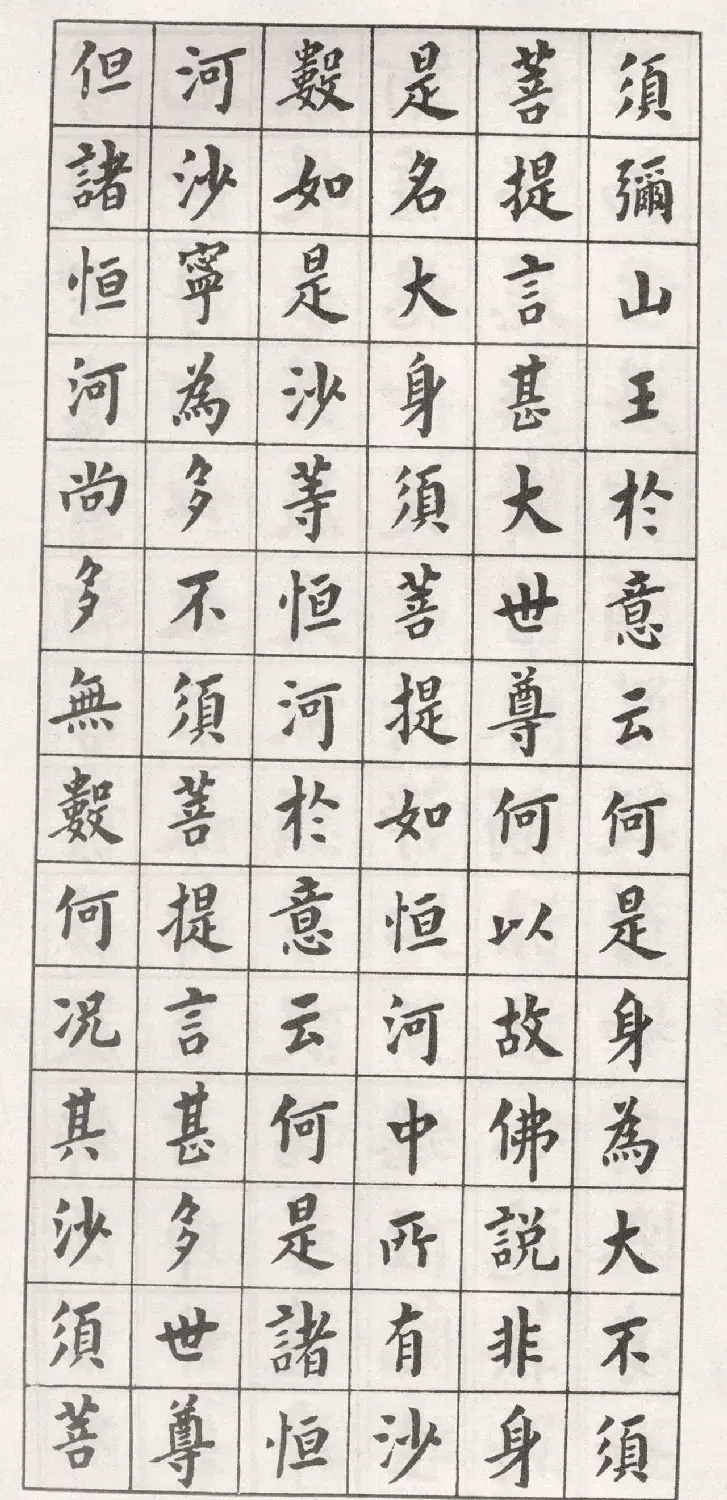 須彌山王於意云何是身為大不須
菩提言甚大世尊何以故佛說非身
是名大身須菩提如恒河中所有沙
數如是沙等恒河於意云何是諸恒
河沙寧為多不須菩提言甚多世尊
但諸恒河尚多無數何況其沙須菩